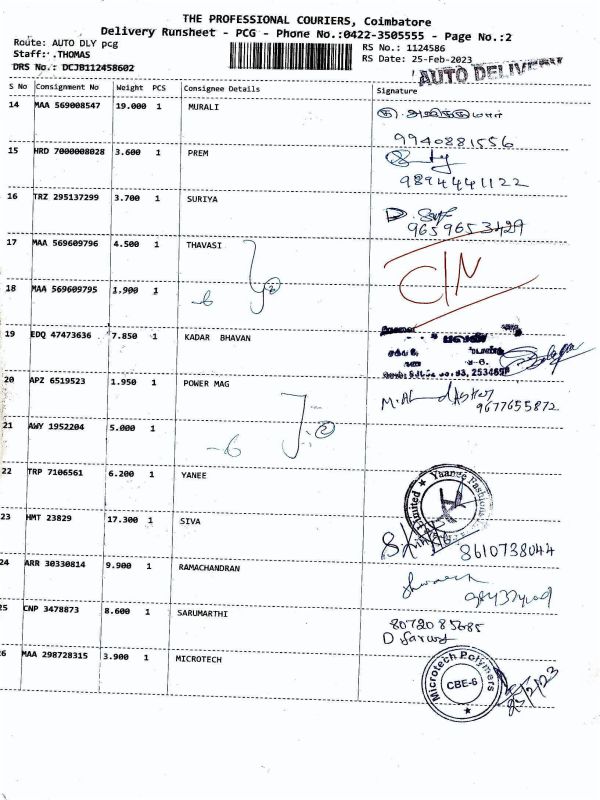 THE PROFESSIONAL COURIERS, Coimbatore
Delivery Runsheet - PCG - Phone No.:0422-3505555 - Page No.:2
Route: AUTO DLY pcg
RS No.: 1124586
Staff: .THOMAS
RS Date: 25-Feb-2023
DRS No.: DCJB112458602
AUTO DELIVERY
S No Consignment No Weight PCS Consignee Details Signature
14 MAA 569008547 19.000 1 MURALI
9940881556
15 HRD 7000008028 3.600 1 PREM
9894441122
16 TRZ 295137299 3.700 1 SURIYA
D.
17 MAA 569609796 4.500 1 THAVASI
C/N
18 MAA 569609795 1.900 1
-6
19 EDQ 47473636 7.850 1 KADAR BHAVAN
20 APZ 6519523 1.950 1 POWER MAG
9677655872
21 AWY 1952204 5.000 1
-6
22 TRP 7106561 6.200 1 YANEE
Yaanee Fashions
Limited
23 HMT 23829 17.300 1 SIVA
8610738044
24 ARR 30330814 9.900 1 RAMACHANDRAN
25 CNP 3478873 8.600 1 SARUMARTHI
8072085685
26 MAA 298728315 3.900 1 MICROTECH
Microtech Polymers
CBE-6